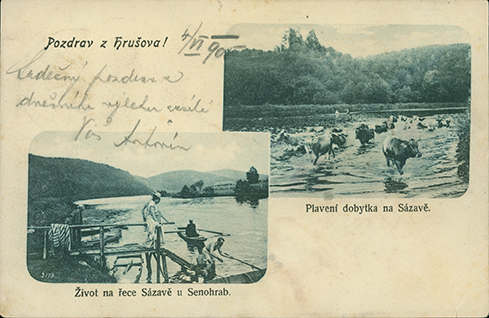 Pozdrav z Hrušova!
4/VI 90
Srdečný pozdrav z
dnešního výletu zasílá
Váš Antonín
Plavení dobytka na Sázavě.
Život na řece Sázavě u Senohrab.